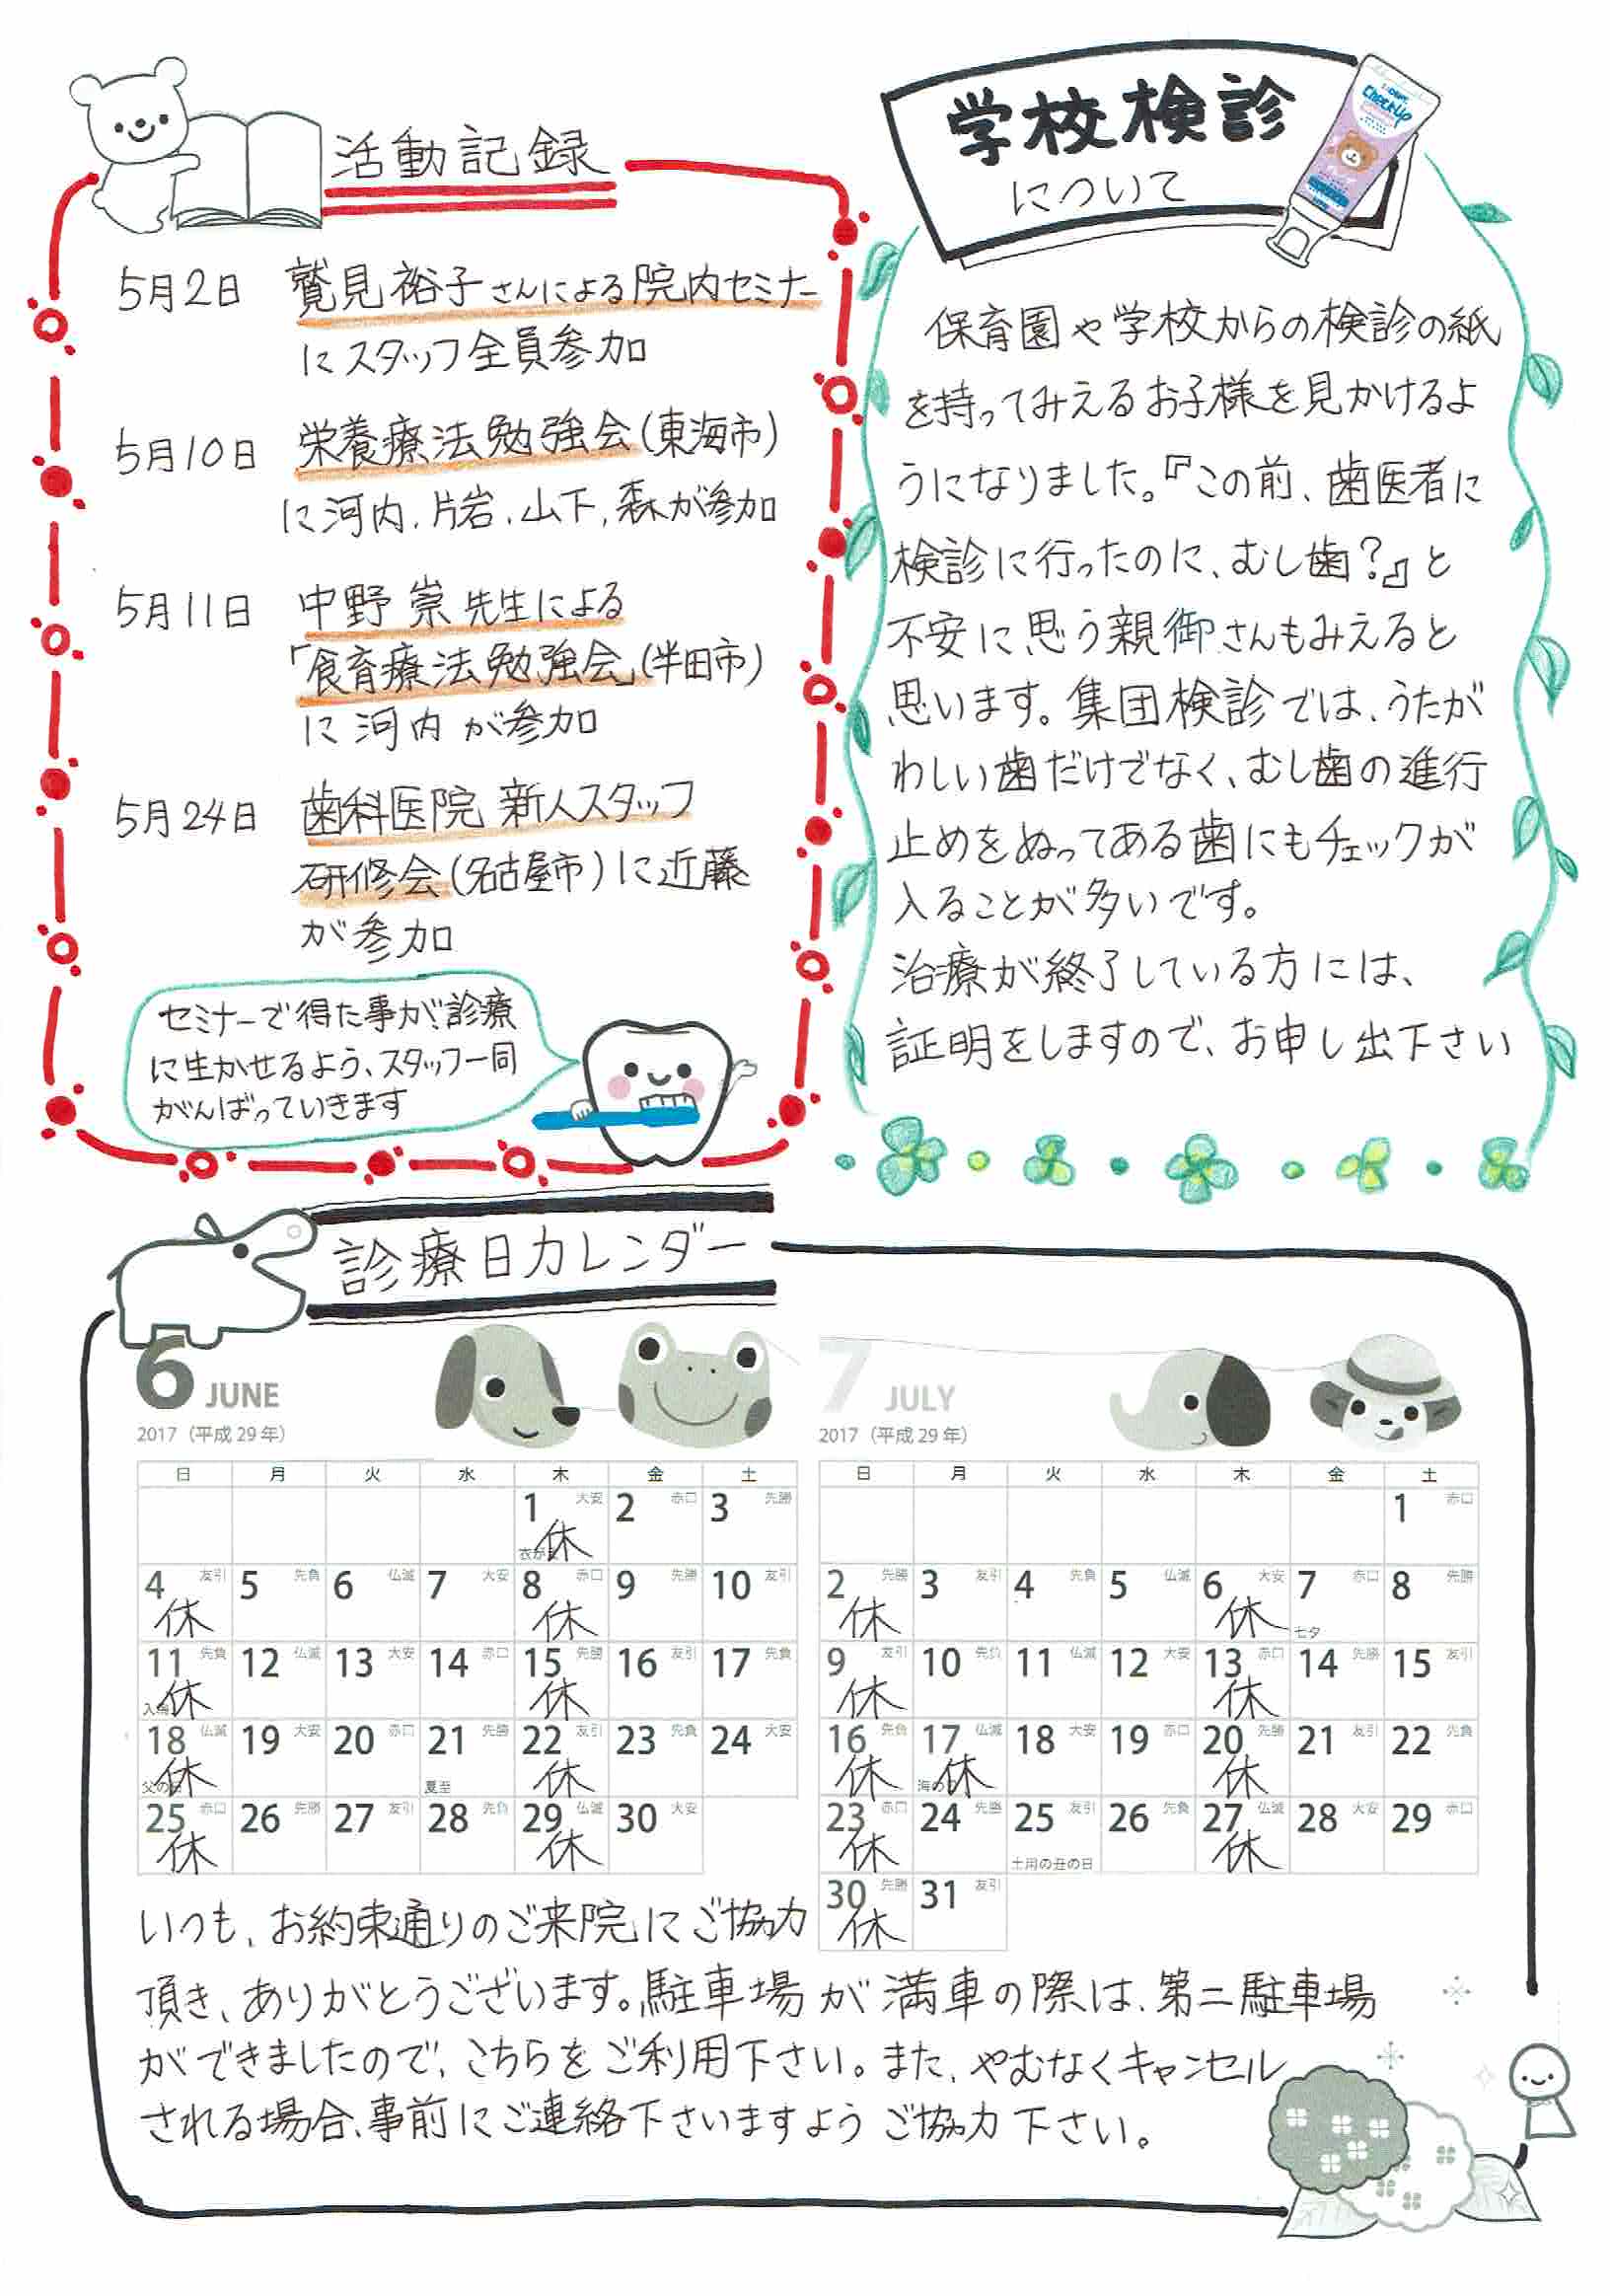 活動記録
5月2日 鷲見裕子さんによる院内セミナー
にスタッフ全員参加
5月10日 栄養療法勉強会(東海市)
に河内、片岩、山下、森が参加
5月11日 中野崇先生による
「食育療法勉強会」(半田市)
に河内が参加
5月24日 歯科医院 新人スタッフ
研修会(名古屋市)に近藤
が参加
セミナーで得た事が診療
に生かせるよう、スタッフ一同
がんばっていきます
学校検診
について
Check-Up
保育園や学校からの検診の紙
を持ってみえるお子様を見かけるよ
うになりました。『この前、歯医者に
検診に行ったのに、むし歯?』と
不安に思う親御さんもみえると
思います。集団検診では、うたが
わしい歯だけでなく、むし歯の進行
止めをぬってある歯にもチェックが
入ることが多いです。
治療が終了している方には、
証明をしますので、お申し出下さい
診療日カレンダー
6 JUNE
2017(平成29年)
日 月 火 水 木 金 土
1 大安 休 2 赤口 3 先勝
4 友引 休 5 先負 6 仏滅 7 大安 8 赤口 休 9 先勝 10 友引
11 先負 休 12 仏滅 13 大安 14 赤口 15 先勝 休 16 友引 17 先負
18 仏滅 父の日 休 19 大安 20 赤口 21 先勝 夏至 22 友引 休 23 先負 24 大安
25 赤口 休 26 先勝 27 友引 28 先負 29 仏滅 休 30 大安
7 JULY
2017(平成29年)
日 月 火 水 木 金 土
1 赤口
2 先勝 休 3 友引 4 先負 5 仏滅 6 大安 休 7 赤口 七夕 8 先勝
9 友引 休 10 先負 11 仏滅 12 大安 13 赤口 休 14 先勝 15 友引
16 先負 休 17 仏滅 海の日 休 18 大安 19 赤口 20 先勝 休 21 友引 22 先負
23 赤口 休 24 先勝 25 友引 土用の丑の日 26 先負 27 仏滅 休 28 大安 29 赤口
30 先勝 休 31 友引
いつも、お約束通りのご来院にご協力
頂き、ありがとうございます。駐車場が満車の際は、第二駐車場
ができましたので、こちらをご利用下さい。また、やむなくキャンセル
される場合、事前にご連絡下さいますようご協力下さい。